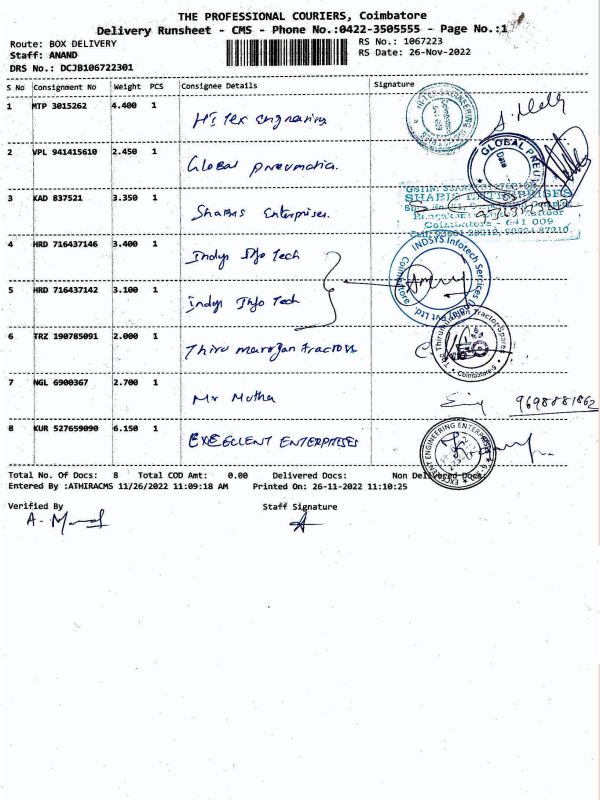 THE PROFESSIONAL COURIERS, Coimbatore
Delivery Runsheet - CMS - Phone No.:0422-3505555 - Page No.:1
Route: BOX DELIVERY
RS No.: 1067223
Staff: ANAND
RS Date: 26-Nov-2022
DRS No.: DCJB106722301
S No Consignment No Weight PCS Consignee Details Signature
1 MTP 3015262 4.400 1 Hi Tex Engineering
2 VPL 941415610 2.450 1 Global pneumatics.
GLOBAL PNEU
3 KAD 837521 3.350 1 Sharis Enterprises.
SHARIS ENTERPRISES
Coimbatore - 641 009
4 HRD 716437146 3.400 1 Indsys Info Tech
INDSYS Infotech Services (India) Pvt Ltd
Coimbatore
5 HRD 716437142 3.100 1 Indsys Info Tech
6 TRZ 190785091 2.000 1 Thiru murugan tractors
Coimbatore-9
7 NGL 6900367 2.700 1 Mr Mutha
9698881862
8 KUR 527659090 6.150 1 EXCELLENT ENTERPRISES
EXCELLENT ENGINEERING ENTERPRISES
Total No. Of Docs: 8 Total COD Amt: 0.00 Delivered Docs: Non Delivered Docs:
Entered By :ATHIRACMS 11/26/2022 11:09:18 AM Printed On: 26-11-2022 11:10:25
Verified By Staff Signature